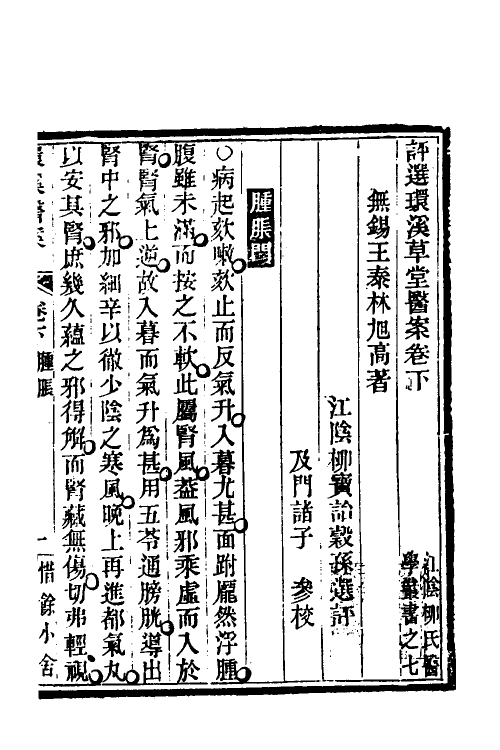 評選環溪草堂醫案卷下
江陰柳氏醫
學叢書之七
無錫王泰林旭高著
江陰柳寶詒穀孫選評
及門諸子 參校
腫脹門
○病起欬嗽欬止而反氣升入暮尤甚面跗龐然浮腫
腹雖未滿而按之不軟此屬腎風葢風邪乘虛而入於
腎腎氣上逆故入暮而氣升爲甚用五苓通膀胱導出
腎中之邪加細辛以徹少陰之寒風晚上再進都氣丸
以安其腎庶幾久蘊之邪得解而腎藏無傷切弗輕視
卷下 腫脹
一 惜餘小舍